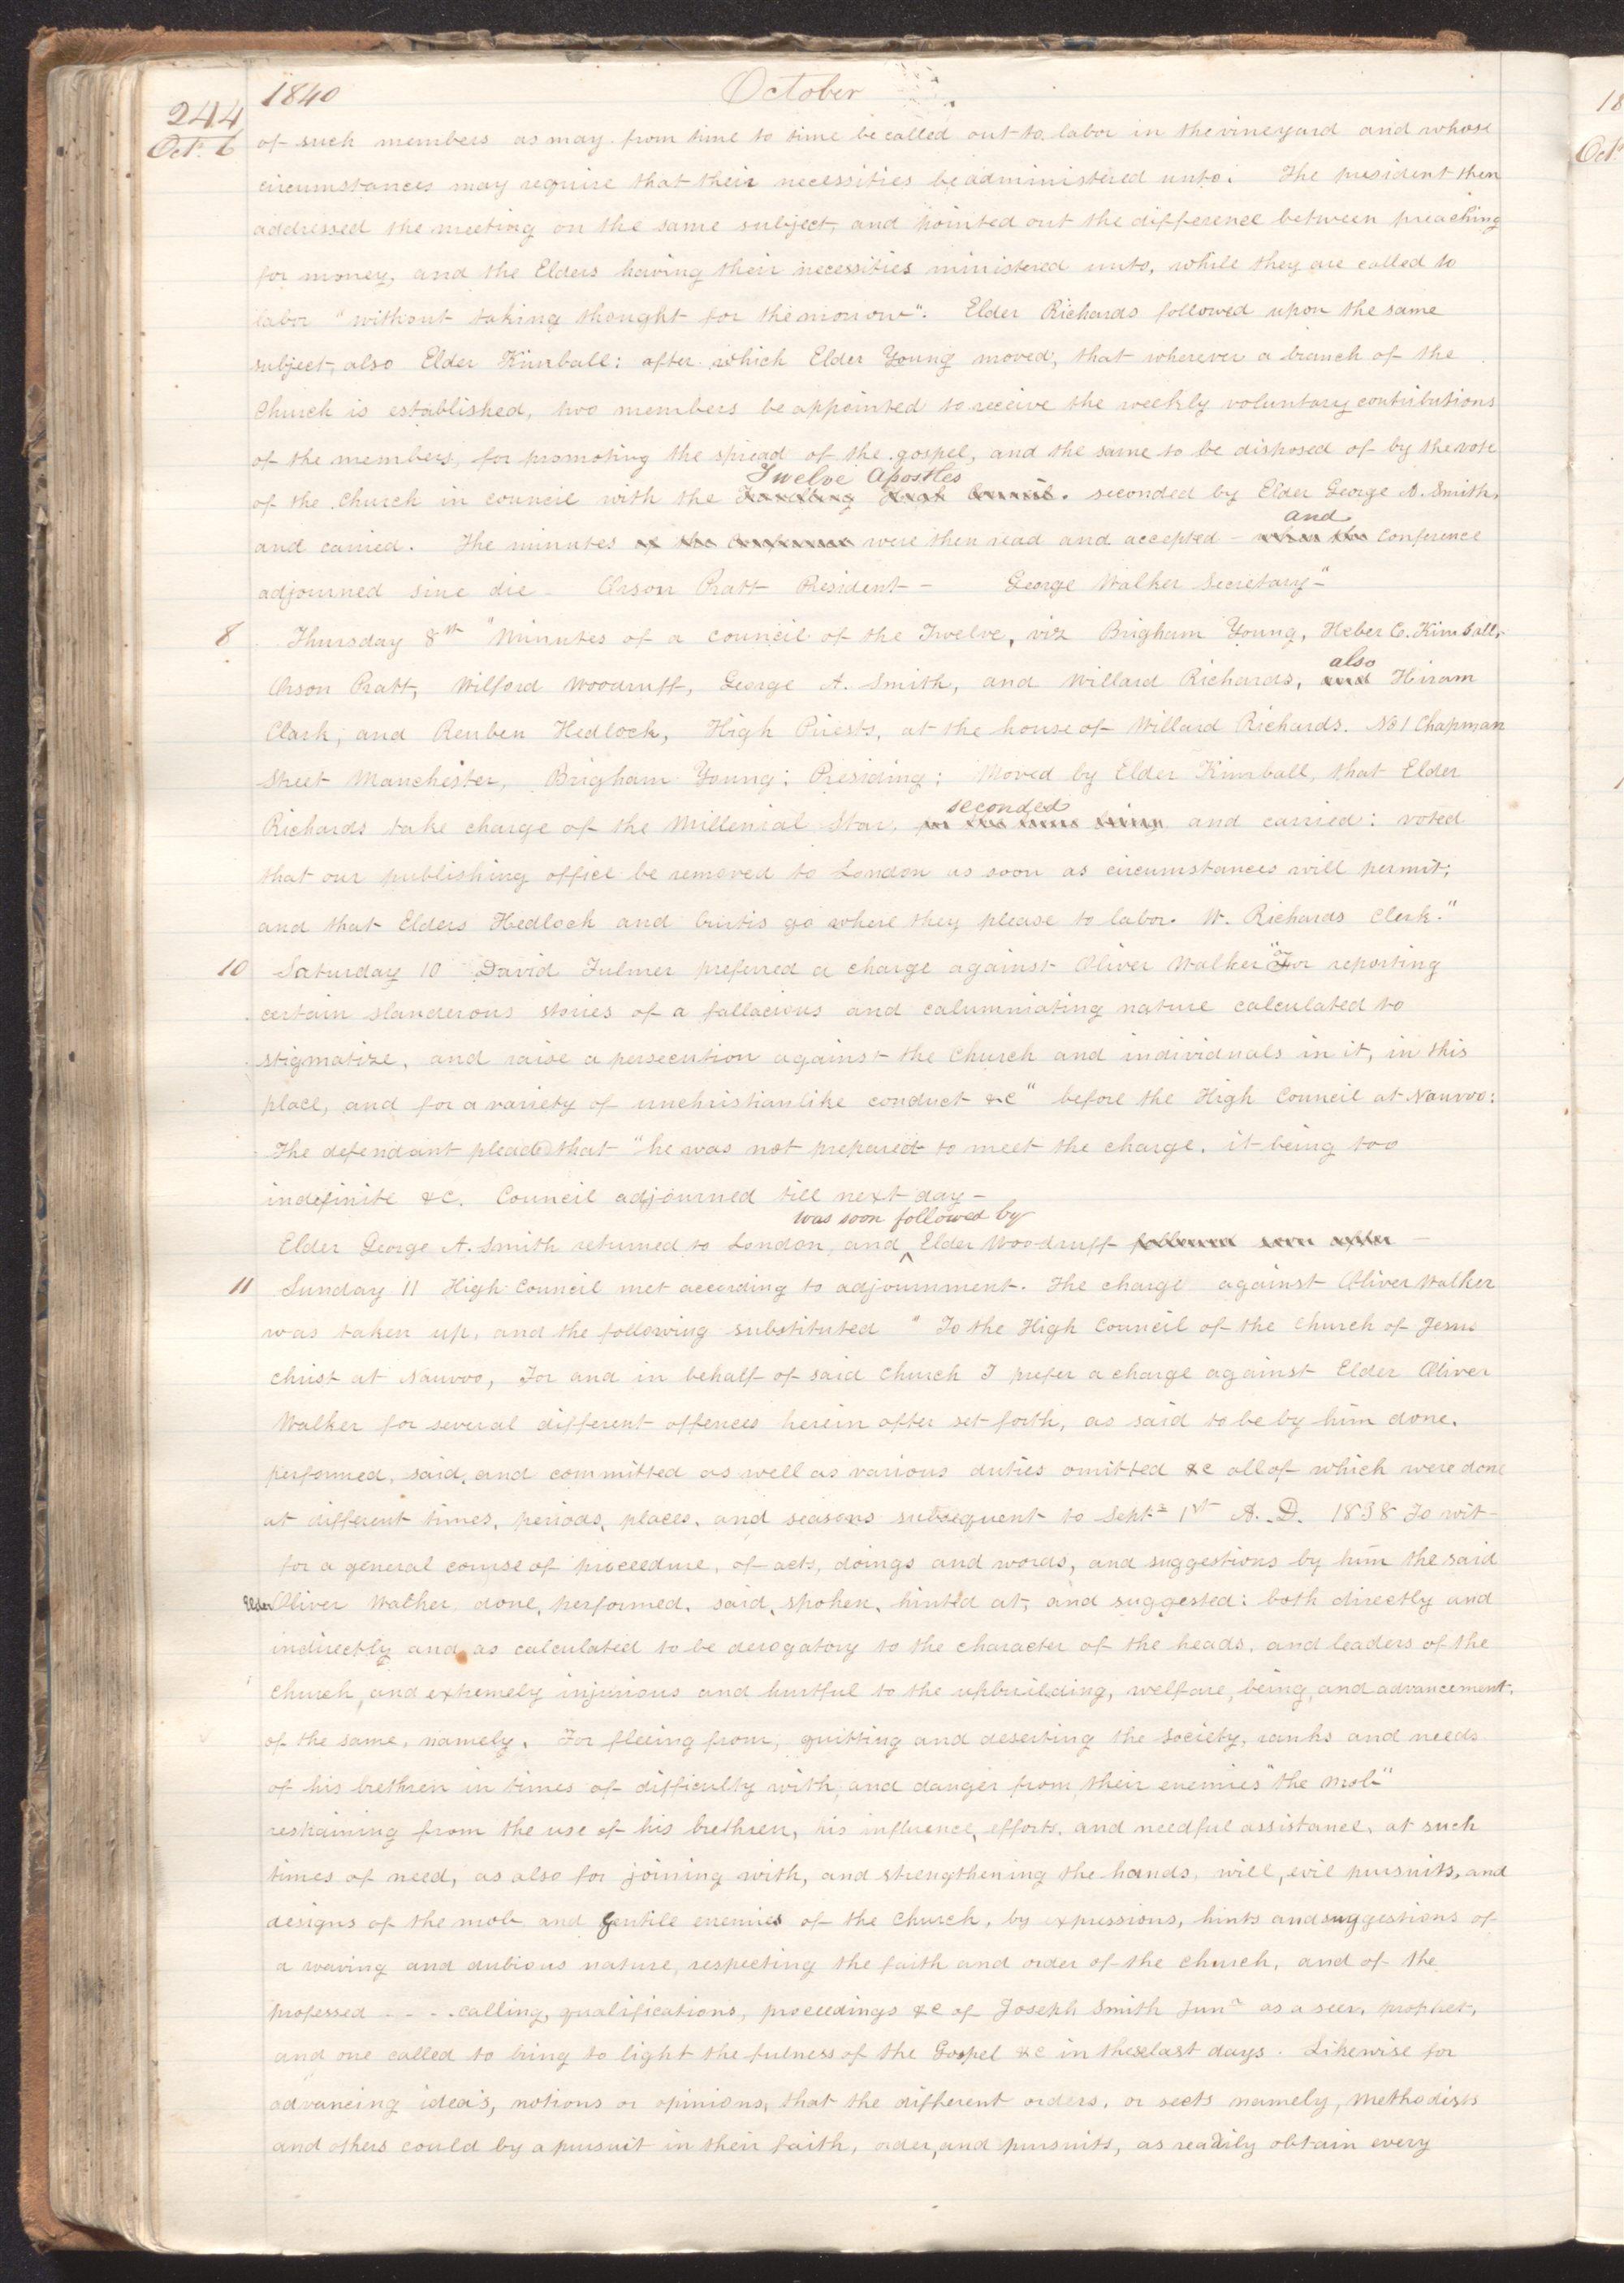 244 1840 October
Oct. 6 of such members as may from time to time be called out to labor in the vineyard and whose
circumstances may require that their necessities be administered unto. The president then
addressed the meeting on the same subject, and pointed out the difference between preaching
for money, and the Elders having their necessities ministered unto, while they are called to
labor "without taking thought for the morrow". Elder Richards followed upon the same
subject, also Elder Kimball: after which Elder Young moved, that wherever a branch of the
Church is established, two members be appointed to receive the weekly voluntary contributions
of the members, for promoting the spread of the gospel, and the same to be disposed of by the vote
Twelve Apostles
of the Church in council with the Travelling High Council. seconded by Elder George A. Smith,
and
and carried. The minutes of the Conference were then read and accepted - when the conference
adjourned sine die - Orson Pratt President - George Walker Secretary-"
8 Thursday 8th "Minutes of a council of the Twelve, viz Brigham Young, Heber C. Kimball,
also
Orson Pratt, Wilford Woodruff, George A. Smith, and Willard Richards, and Hiram
Clark, and Reuben Hedlock, High Priests, at the house of Willard Richards. No 1 Chapman
Street Manchester, Brigham Young; Presiding; Moved by Elder Kimball, that Elder
seconded
Richards take charge of the Millenial Star, and carried: voted
that our publishing office be removed to London as soon as circumstances will permit;
and that Elders Hedlock and Curtis go where they please to labor. W. Richards Clerk."
10 Saturday 10 David Fulmer preferred a charge against Oliver Walker "For reporting
certain slanderous stories of a fallacious and calumniating nature calculated to
stigmatize, and raise a persecution against the Church and individuals in it, in this
place, and for a variety of unchristianlike conduct &c" before the High Council at Nauvoo:
The defendant plead that "he was not prepared to meet the charge, it being too
indefinite &c. Council adjourned till next day -
was soon followed by
Elder George A. Smith returned to London, and ^ Elder Woodruff followed soon after -
11 Sunday 11 High Council met according to adjournment. The charge against Oliver Walker
was taken up, and the following substituted "To the High Council of the Church of Jesus
Christ at Nauvoo, For and in behalf of said Church I prefer a charge against Elder Oliver
Walker for several different offences herein after set forth, as said to be by him done,
performed, said, and committed as well as various duties omitted &c all of which were done
at different times, periods, places, and seasons subsequent to Septr 1st A.D. 1838 To wit -
for a general course of proceedure, of acts, doings and words, and suggestions by him the said
Elder Oliver Walker done, performed, said, spoken, hinted at, and suggested: both directly and
indirectly and as calculated to be derogatory to the character of the heads, and leaders of the
Church, and extremely injurious and hurtful to the upbuilding, welfare, being, and advancement
of the same, namely, For fleeing from, quitting and deserting the society, ranks and needs
of his brethren in times of difficulty with, and danger from, their enemies "the mob"
restraining from the use of his brethren, his influence, efforts, and needful assistance, at such
times of need, as also for joining with, and strengthening the hands, will, evil pursuits, and
designs of the mob and Gentile enemies of the Church, by expressions, hints and suggestions of
a waving and dubious nature, respecting the faith and order of the church, and of the
professed - - - - calling, qualifications, proceedings &c of Joseph Smith Junr as a seer, prophet,
and one called to bring to light the fulness of the Gospel &c in these last days. Likewise for
advancing idea's, notions or opinions, that the different orders, or sects namely, Methodists
and others could by a pursuit in their faith, order, and pursuits, as readily obtain every
18
Oct.